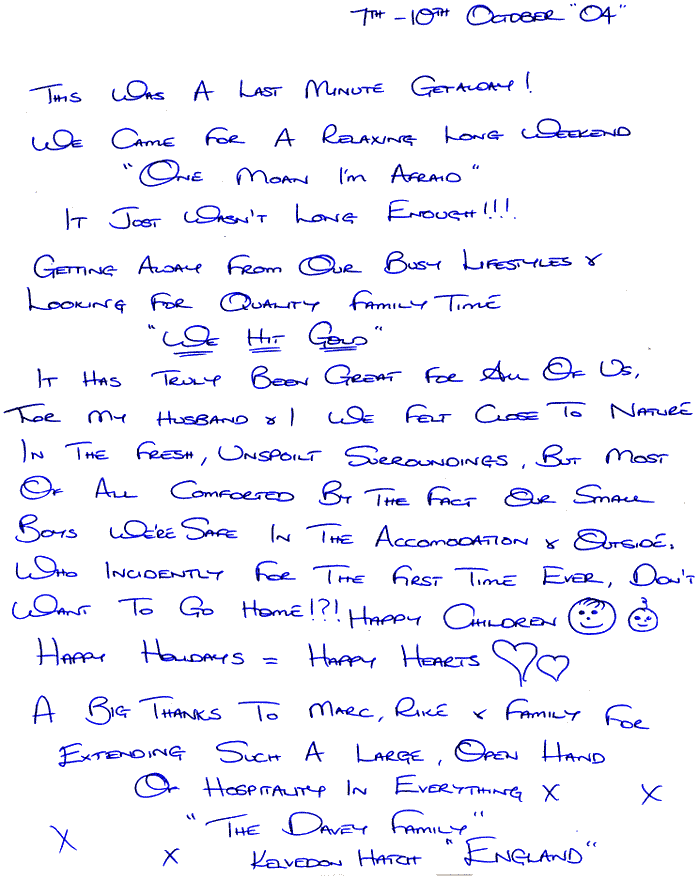 7TH - 10TH OCTOBER "04"
THIS WAS A LAST MINUTE GETAWAY!
WE CAME FOR A RELAXING LONG WEEKEND
"ONE MOAN I'M AFRAID"
IT JUST WASN'T LONG ENOUGH!!!.
GETTING AWAY FROM OUR BUSY LIFESTYLES &
LOOKING FOR QUALITY FAMILY TIME
"WE HIT GOLD"
IT HAS TRULY BEEN GREAT FOR ALL OF US,
FOR MY HUSBAND & I WE FELT CLOSE TO NATURE
IN THE FRESH, UNSPOILT SURROUNDINGS, BUT MOST
OF ALL COMFORTED BY THE FACT OUR SMALL
BOYS WE'RE SAFE IN THE ACCOMODATION & OUTSIDE,
WHO INCIDENTLY FOR THE FIRST TIME EVER, DON'T
WANT TO GO HOME!?! HAPPY CHILDREN
HAPPY HOLIDAYS = HAPPY HEARTS
A BIG THANKS TO MARC, RIKE & FAMILY FOR
EXTENDING SUCH A LARGE, OPEN HAND
OF HOSPITALITY IN EVERYTHING X X
"THE DAVEY FAMILY"
X X KELVEDON HATCH "ENGLAND"